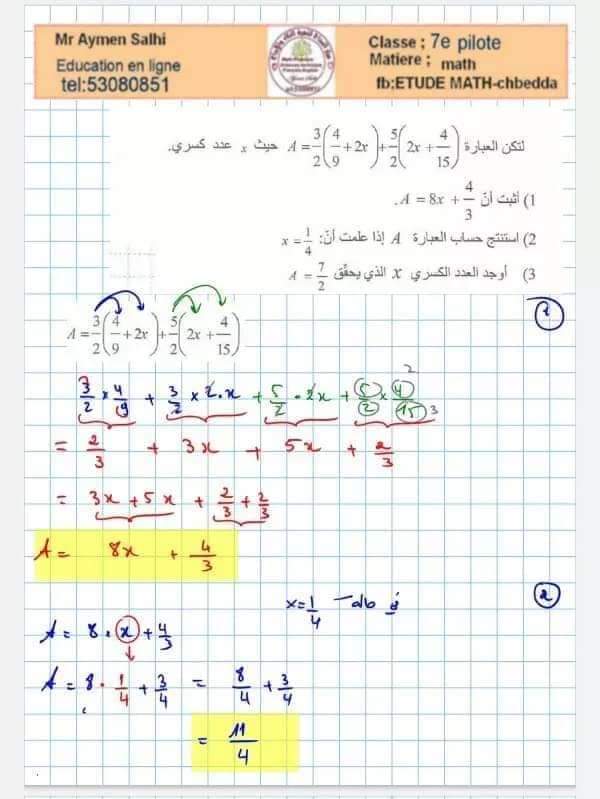 Mr Aymen Salhi
Education en ligne
tel:53080851
Classe ; 7e pilote
Matiere ; math
fb;ETUDE MATH-chbedda
لتكن العبارة A = 3/2 (4/9 + 2x) + 5/2 (2x + 4/15) حيث x عدد كسري.
1) أثبت أنّ A = 8x + 4/3 .
2) استنتج حساب العبارة A إذا علمت أنّ: x = 1/4
3) أوجد العدد الكسري x الذي يحقّق A = 7/2
1
A = 3/2 (4/9 + 2x) + 5/2 (2x + 4/15)
3/2 × 4/9 + 3/2 × 2·x + 5/2 · 2x + 5/2 × 4/15
2
3
= 2/3 + 3x + 5x + 2/3
= 3x + 5x + 2/3 + 2/3
A = 8x + 4/3
2
x = 1/4
A = 8 · x + 4/3
A = 8 · 1/4 + 3/4 = 8/4 + 3/4
= 11/4